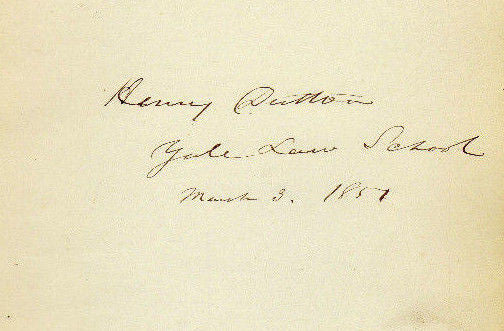 Henry Dutton
Yale Law School
March 3. 1857